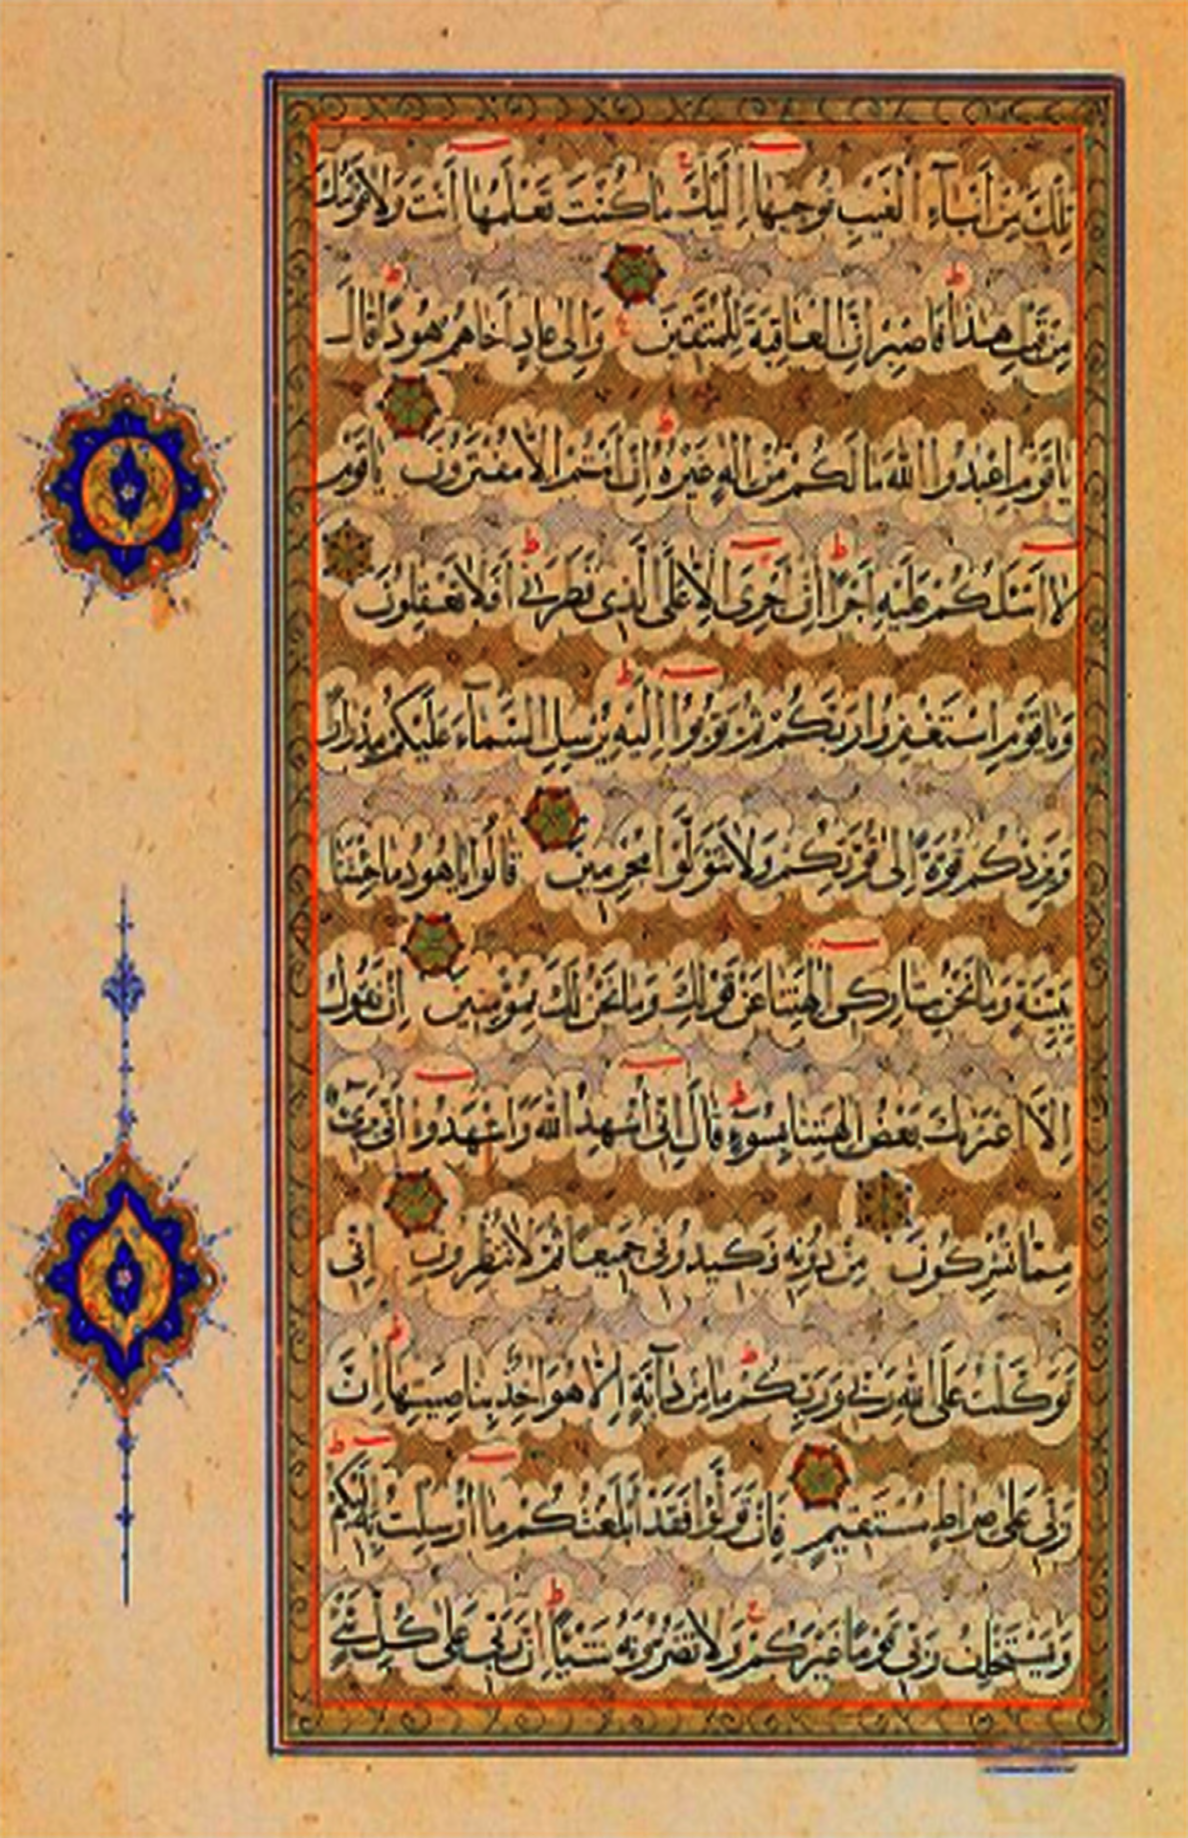 تِلْكَ مِنْ أَنْبَاءِ الْغَيْبِ نُوحِيهَا إِلَيْكَ مَا كُنْتَ تَعْلَمُهَا أَنْتَ وَلَا قَوْمُكَ
مِنْ قَبْلِ هٰذَا فَاصْبِرْ إِنَّ الْعَاقِبَةَ لِلْمُتَّقِينَ وَإِلَى عَادٍ أَخَاهُمْ هُودًا قَالَ
يَاقَوْمِ اعْبُدُوا اللّٰهَ مَا لَكُمْ مِنْ إِلٰهٍ غَيْرُهُ إِنْ أَنْتُمْ إِلَّا مُفْتَرُونَ يَاقَوْمِ
لَا أَسْئَلُكُمْ عَلَيْهِ أَجْرًا إِنْ أَجْرِيَ إِلَّا عَلَى الَّذِي فَطَرَنِي أَفَلَا تَعْقِلُونَ
وَيَاقَوْمِ اسْتَغْفِرُوا رَبَّكُمْ ثُمَّ تُوبُوا إِلَيْهِ يُرْسِلِ السَّمَاءَ عَلَيْكُمْ مِدْرَارًا
وَيَزِدْكُمْ قُوَّةً إِلَى قُوَّتِكُمْ وَلَا تَتَوَلَّوْا مُجْرِمِينَ قَالُوا يَاهُودُ مَا جِئْتَنَا
بِبَيِّنَةٍ وَمَا نَحْنُ بِتَارِكِي آلِهَتِنَا عَنْ قَوْلِكَ وَمَا نَحْنُ لَكَ بِمُؤْمِنِينَ إِنْ نَقُولُ
إِلَّا اعْتَرٰىكَ بَعْضُ آلِهَتِنَا بِسُوءٍ قَالَ إِنِّي أُشْهِدُ اللّٰهَ وَاشْهَدُوا أَنِّي بَرِيءٌ
مِمَّا تُشْرِكُونَ مِنْ دُونِهِ فَكِيدُونِي جَمِيعًا ثُمَّ لَا تُنْظِرُونِ إِنِّي
تَوَكَّلْتُ عَلَى اللّٰهِ رَبِّي وَرَبِّكُمْ مَا مِنْ دَابَّةٍ إِلَّا هُوَ آخِذٌ بِنَاصِيَتِهَا إِنَّ
رَبِّي عَلَى صِرَاطٍ مُسْتَقِيمٍ فَإِنْ تَوَلَّوْا فَقَدْ أَبْلَغْتُكُمْ مَا أُرْسِلْتُ بِهِ إِلَيْكُمْ
وَيَسْتَخْلِفُ رَبِّي قَوْمًا غَيْرَكُمْ وَلَا تَضُرُّونَهُ شَيْئًا إِنَّ رَبِّي عَلَى كُلِّ شَيْءٍ